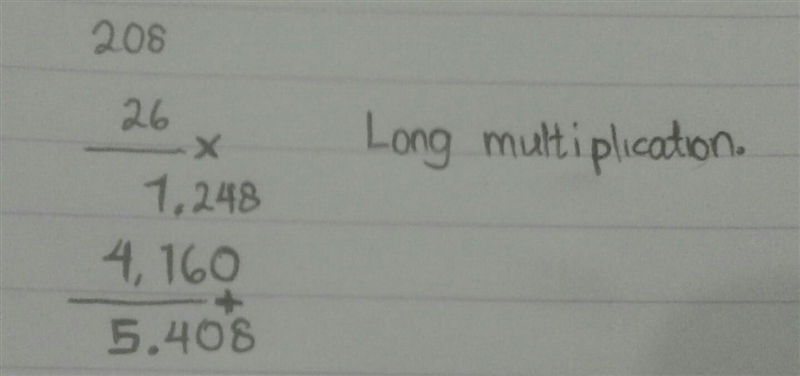 208
26
x
Long multiplication.
1.248
4,160
+
5.408